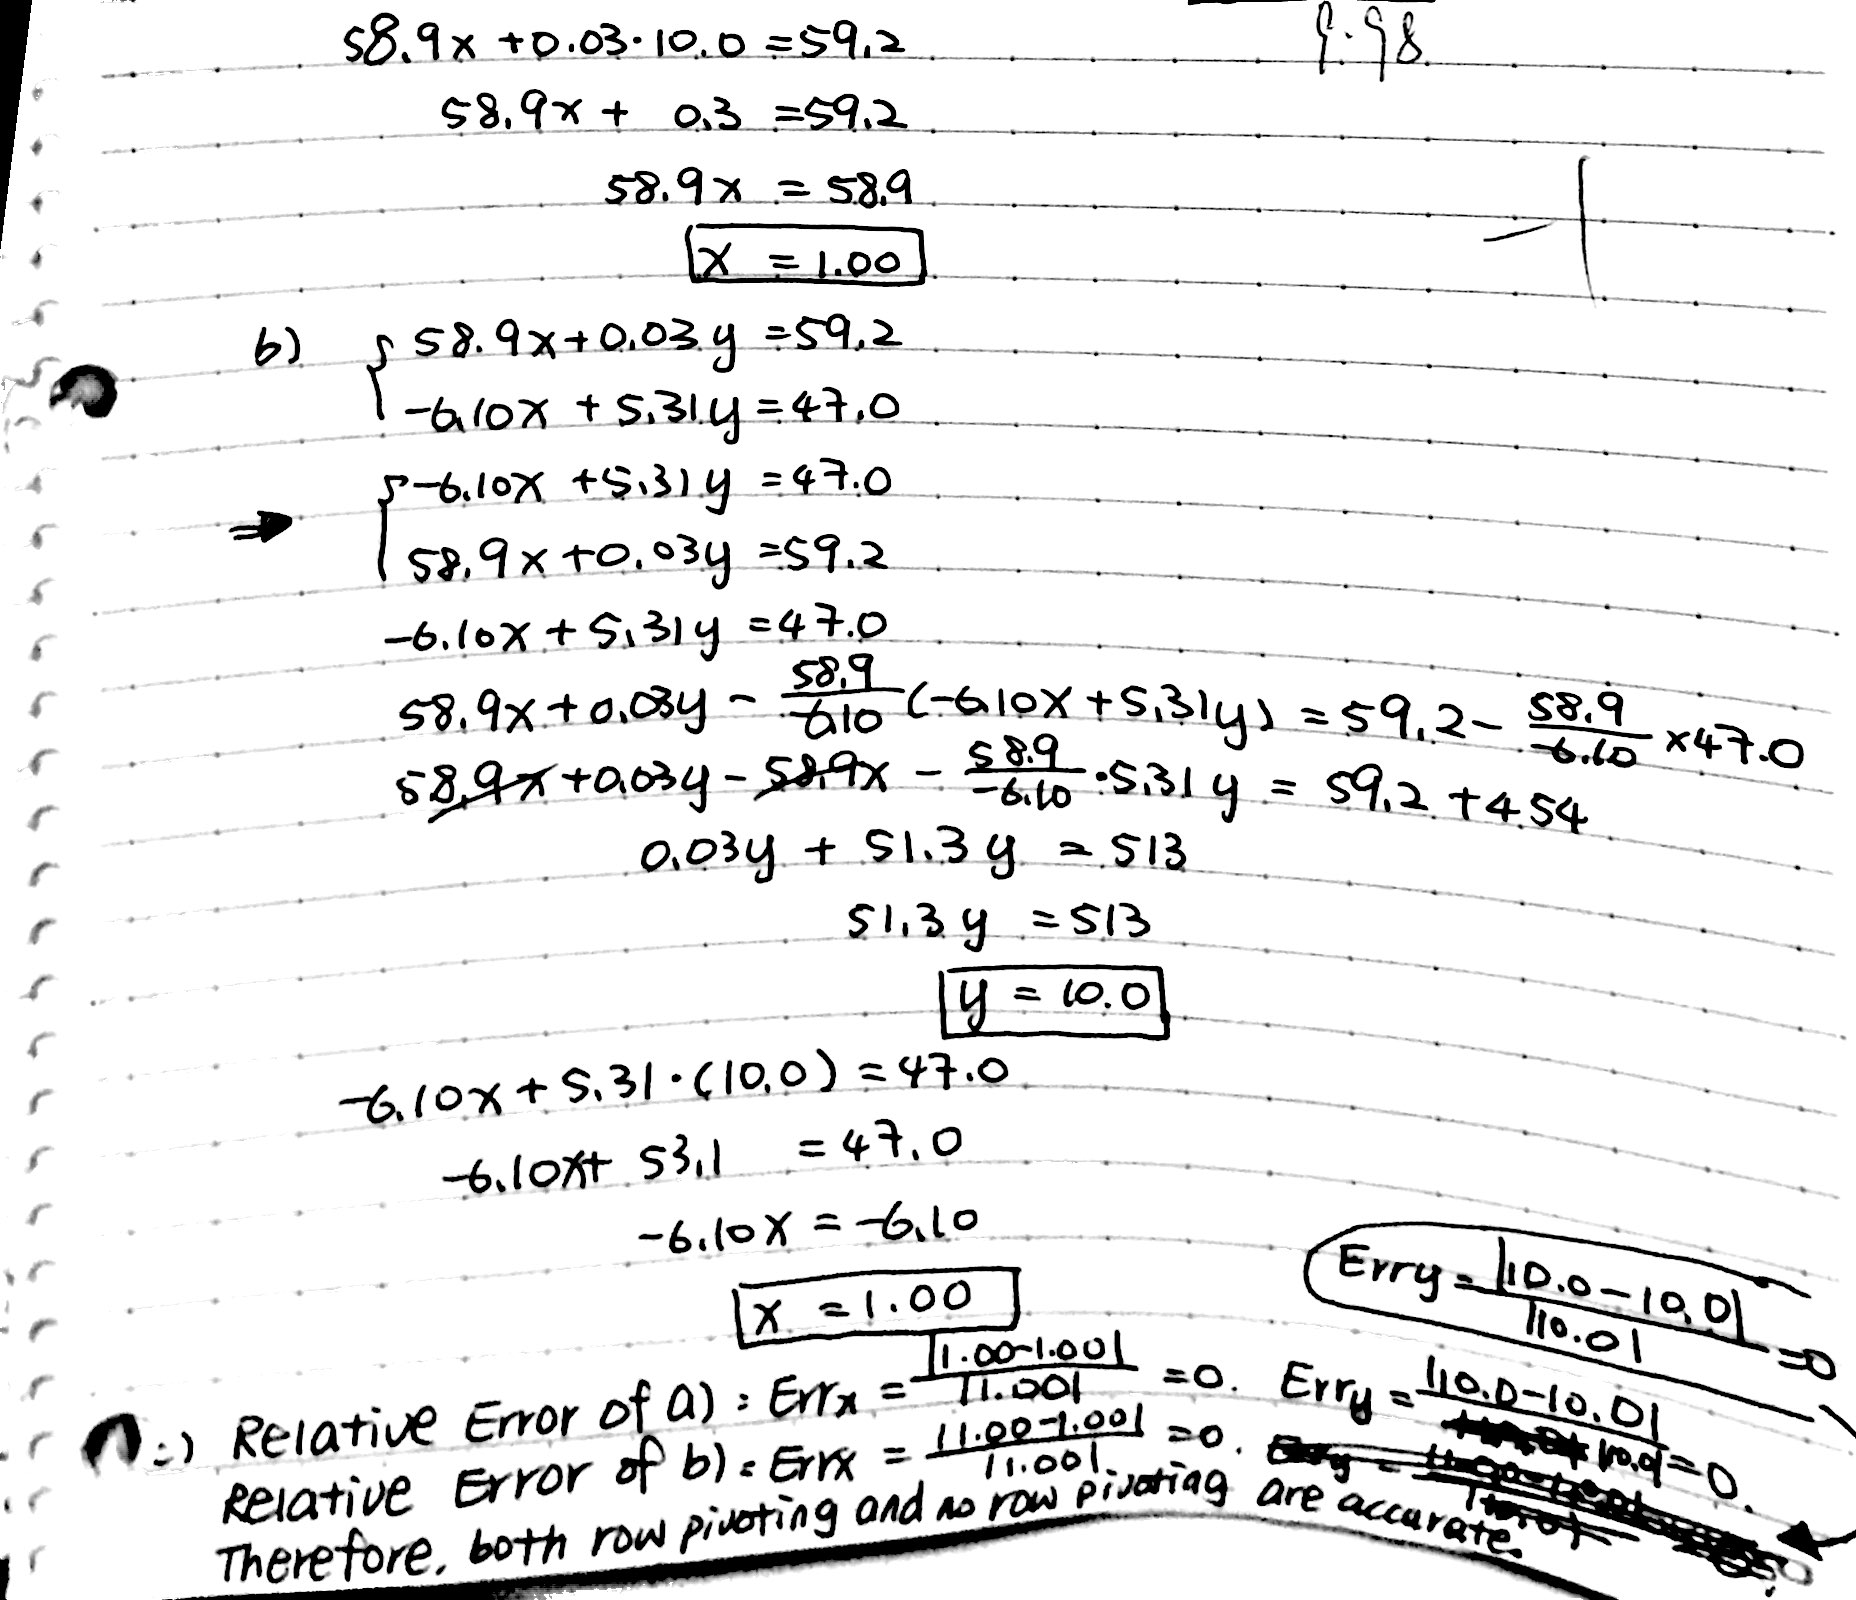 9.98
58.9x +0.03·10.0 =59.2
58.9x + 0.3 =59.2
58.9x = 58.9
x = 1.00
b) { 58.9x+0.03y =59.2
-6.10x + 5.31y =47.0
⇒ { -6.10x +5.31y =47.0
58.9x +0.03y =59.2
-6.10x + 5.31y =47.0
58.9x+0.03y - 58.9/-6.10 (-6.10x +5.31y) =59.2- 58.9/-6.10 ×47.0
58.9x +0.03y - 58.9x - 58.9/-6.10 ·5.31y = 59.2 +454
0.03y + 51.3y = 513
51.3y =513
y = 10.0
-6.10x + 5.31·(10.0) =47.0
-6.10x+ 53.1 =47.0
-6.10x = -6.10
x =1.00
Erry = |10.0-10.0|/|10.0| =0
:) Relative Error of a) : Errx = |1.00-1.00|/|1.00| =0. Erry = |10.0-10.0|/|10.0| =0.
Relative Error of b) : Errx = |1.00-1.00|/|1.00| =0.
Therefore, both row pivoting and no row pivoting are accurate.